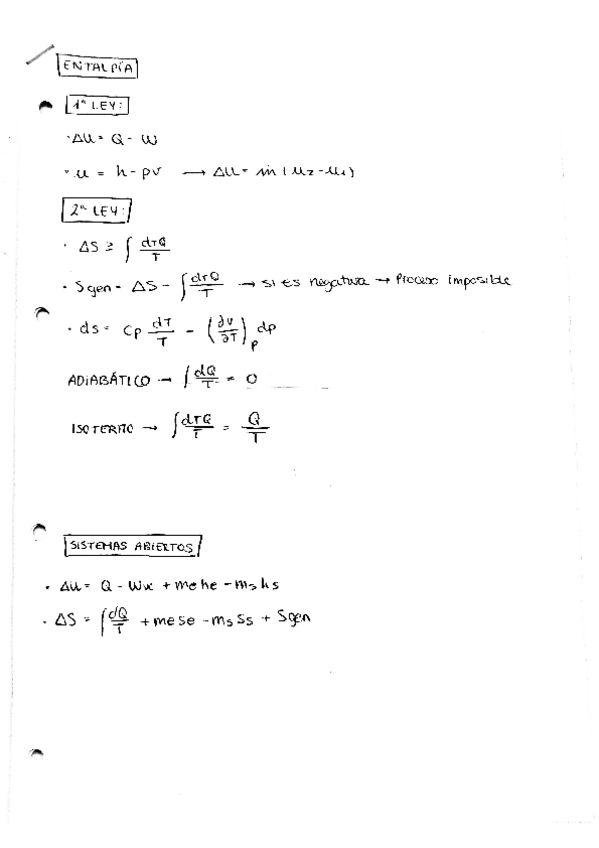 ENTALPÍA
1ª LEY:
· ΔU = Q - W
· u = h - pv → ΔU = m (u₂ - u₁)
2ª LEY:
· ΔS ≥ ∫ drQ/T
· Sgen = ΔS - ∫ drQ/T → si es negativa → Proceso imposible
· ds = Cp dT/T - (∂v/∂T)p dp
ADIABÁTICO → ∫ dQ/T = 0
ISOTERMO → ∫ drQ/T = Q/T
SISTEMAS ABIERTOS
· ΔU = Q - Wx + me he - ms hs
· ΔS = ∫ dQ/T + me se - ms ss + Sgen